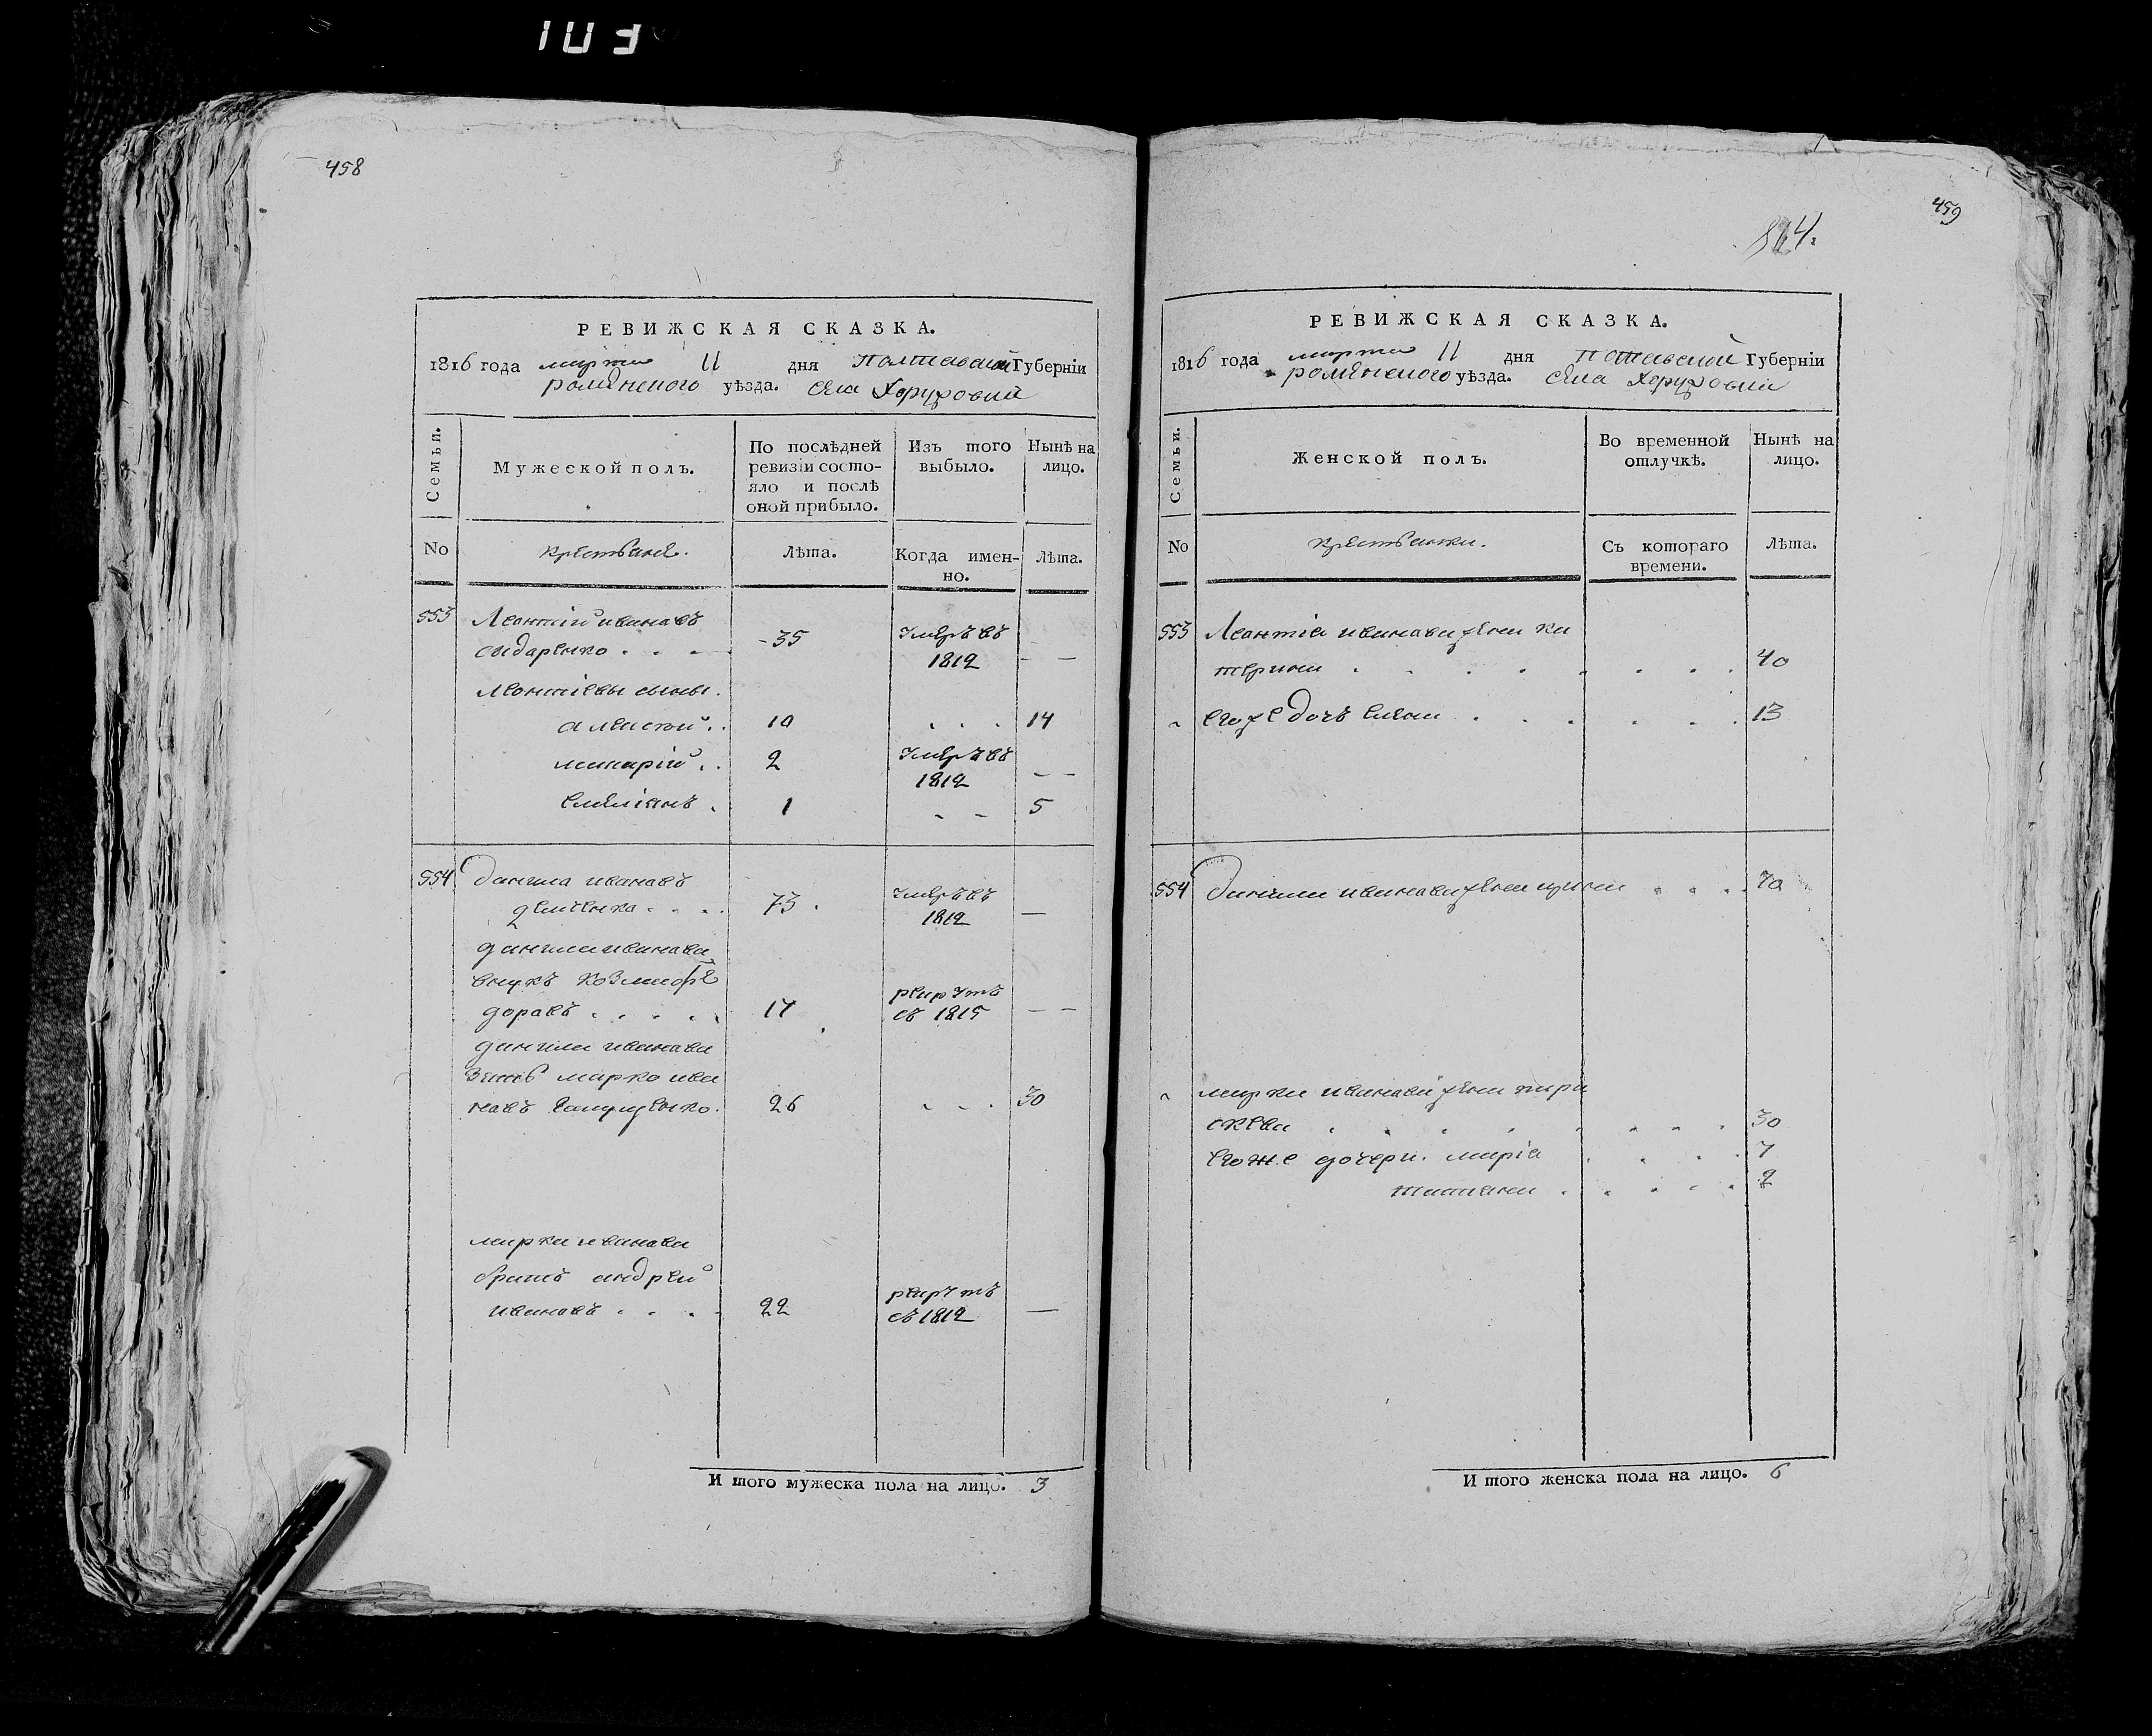 103
458
РЕВИЖСКАЯ СКАЗКА.
1816 года марта 11 дня Полтавской Губерніи
роменского уѣзда. села Хоружовки
Семьи.
Мужеской полъ.
По послѣдней ревизіи состояло и послѣ оной прибыло.
Изъ того выбыло.
Нынѣ на лицо.
No
крестьяне.
Лѣта.
Когда именно.
Лѣта.
553 Леонтій ивановъ
сидаренко 35 умеръ въ 1812 —
леонтіевы сыны
алексѣй 10 14
макарій 2 умеръ въ 1812 —
емеліянъ 1 5
554 данила ивановъ
73 умеръ въ 1812 —
данила иванова
внукъ козма фе
доравъ 17 рекрутъ съ 1815 —
данила иванова
зять марко ива
навъ 26 30
марка иванова
братъ андрей
ивановъ 22 рекрутъ съ 1812 —
И того мужеска пола на лицо. 3
459
824.
РЕВИЖСКАЯ СКАЗКА.
1816 года марта 11 дня Потавской Губерніи
роменского уѣзда. села Хоружовки
Семьи.
Женской полъ.
Во временной отлучкѣ.
Нынѣ на лицо.
No
крестьянки.
Съ котораго времени.
Лѣта.
553 Леонтіа иванова жена ка
терина 40
егожъ дочь елена 13
554 данила иванова жена ирина 70
марка иванова жена пара
скева 30
егоже дочери марія 7
татіана 2
И того женска пола на лицо. 6